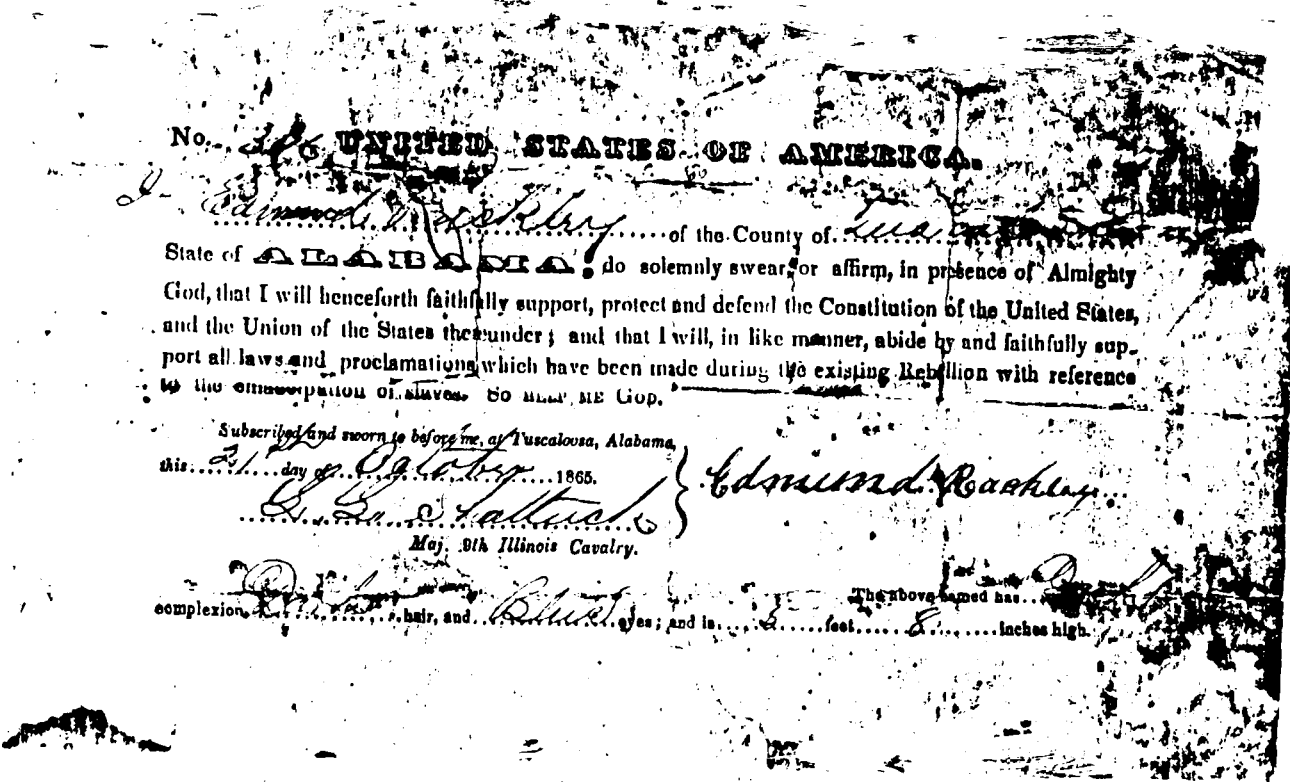 No. UNITED STATES OF AMERICA.
I Edmund of the County of
State of ALABAMA, do solemnly swear, or affirm, in presence of Almighty
God, that I will henceforth faithfully support, protect and defend the Constitution of the United States,
and the Union of the States thereunder; and that I will, in like manner, abide by and faithfully sup-
port all laws and proclamations which have been made during the existing Rebellion with reference
to the emancipation of slaves. So HELP ME GOD.
Subscribed and sworn to before me, at Tuscaloosa, Alabama,
this 21 day of October 1865.
Edmund Rackley
Maj. 9th Illinois Cavalry.
The above named has
complexion, hair, and eyes; and is 5 feet 8 inches high.